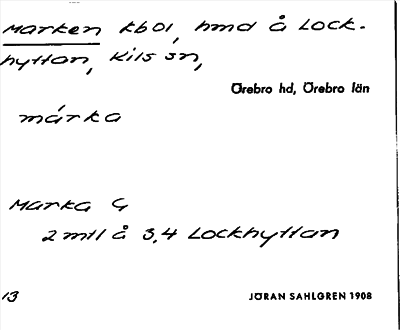 Marken kbol, hmd å Lock-
hyttan, Kils sn,
Örebro hd, Örebro län
márka
Marka G
2 mtl å 3,4 Lockhyttan
13 JÖRAN SAHLGREN 1908